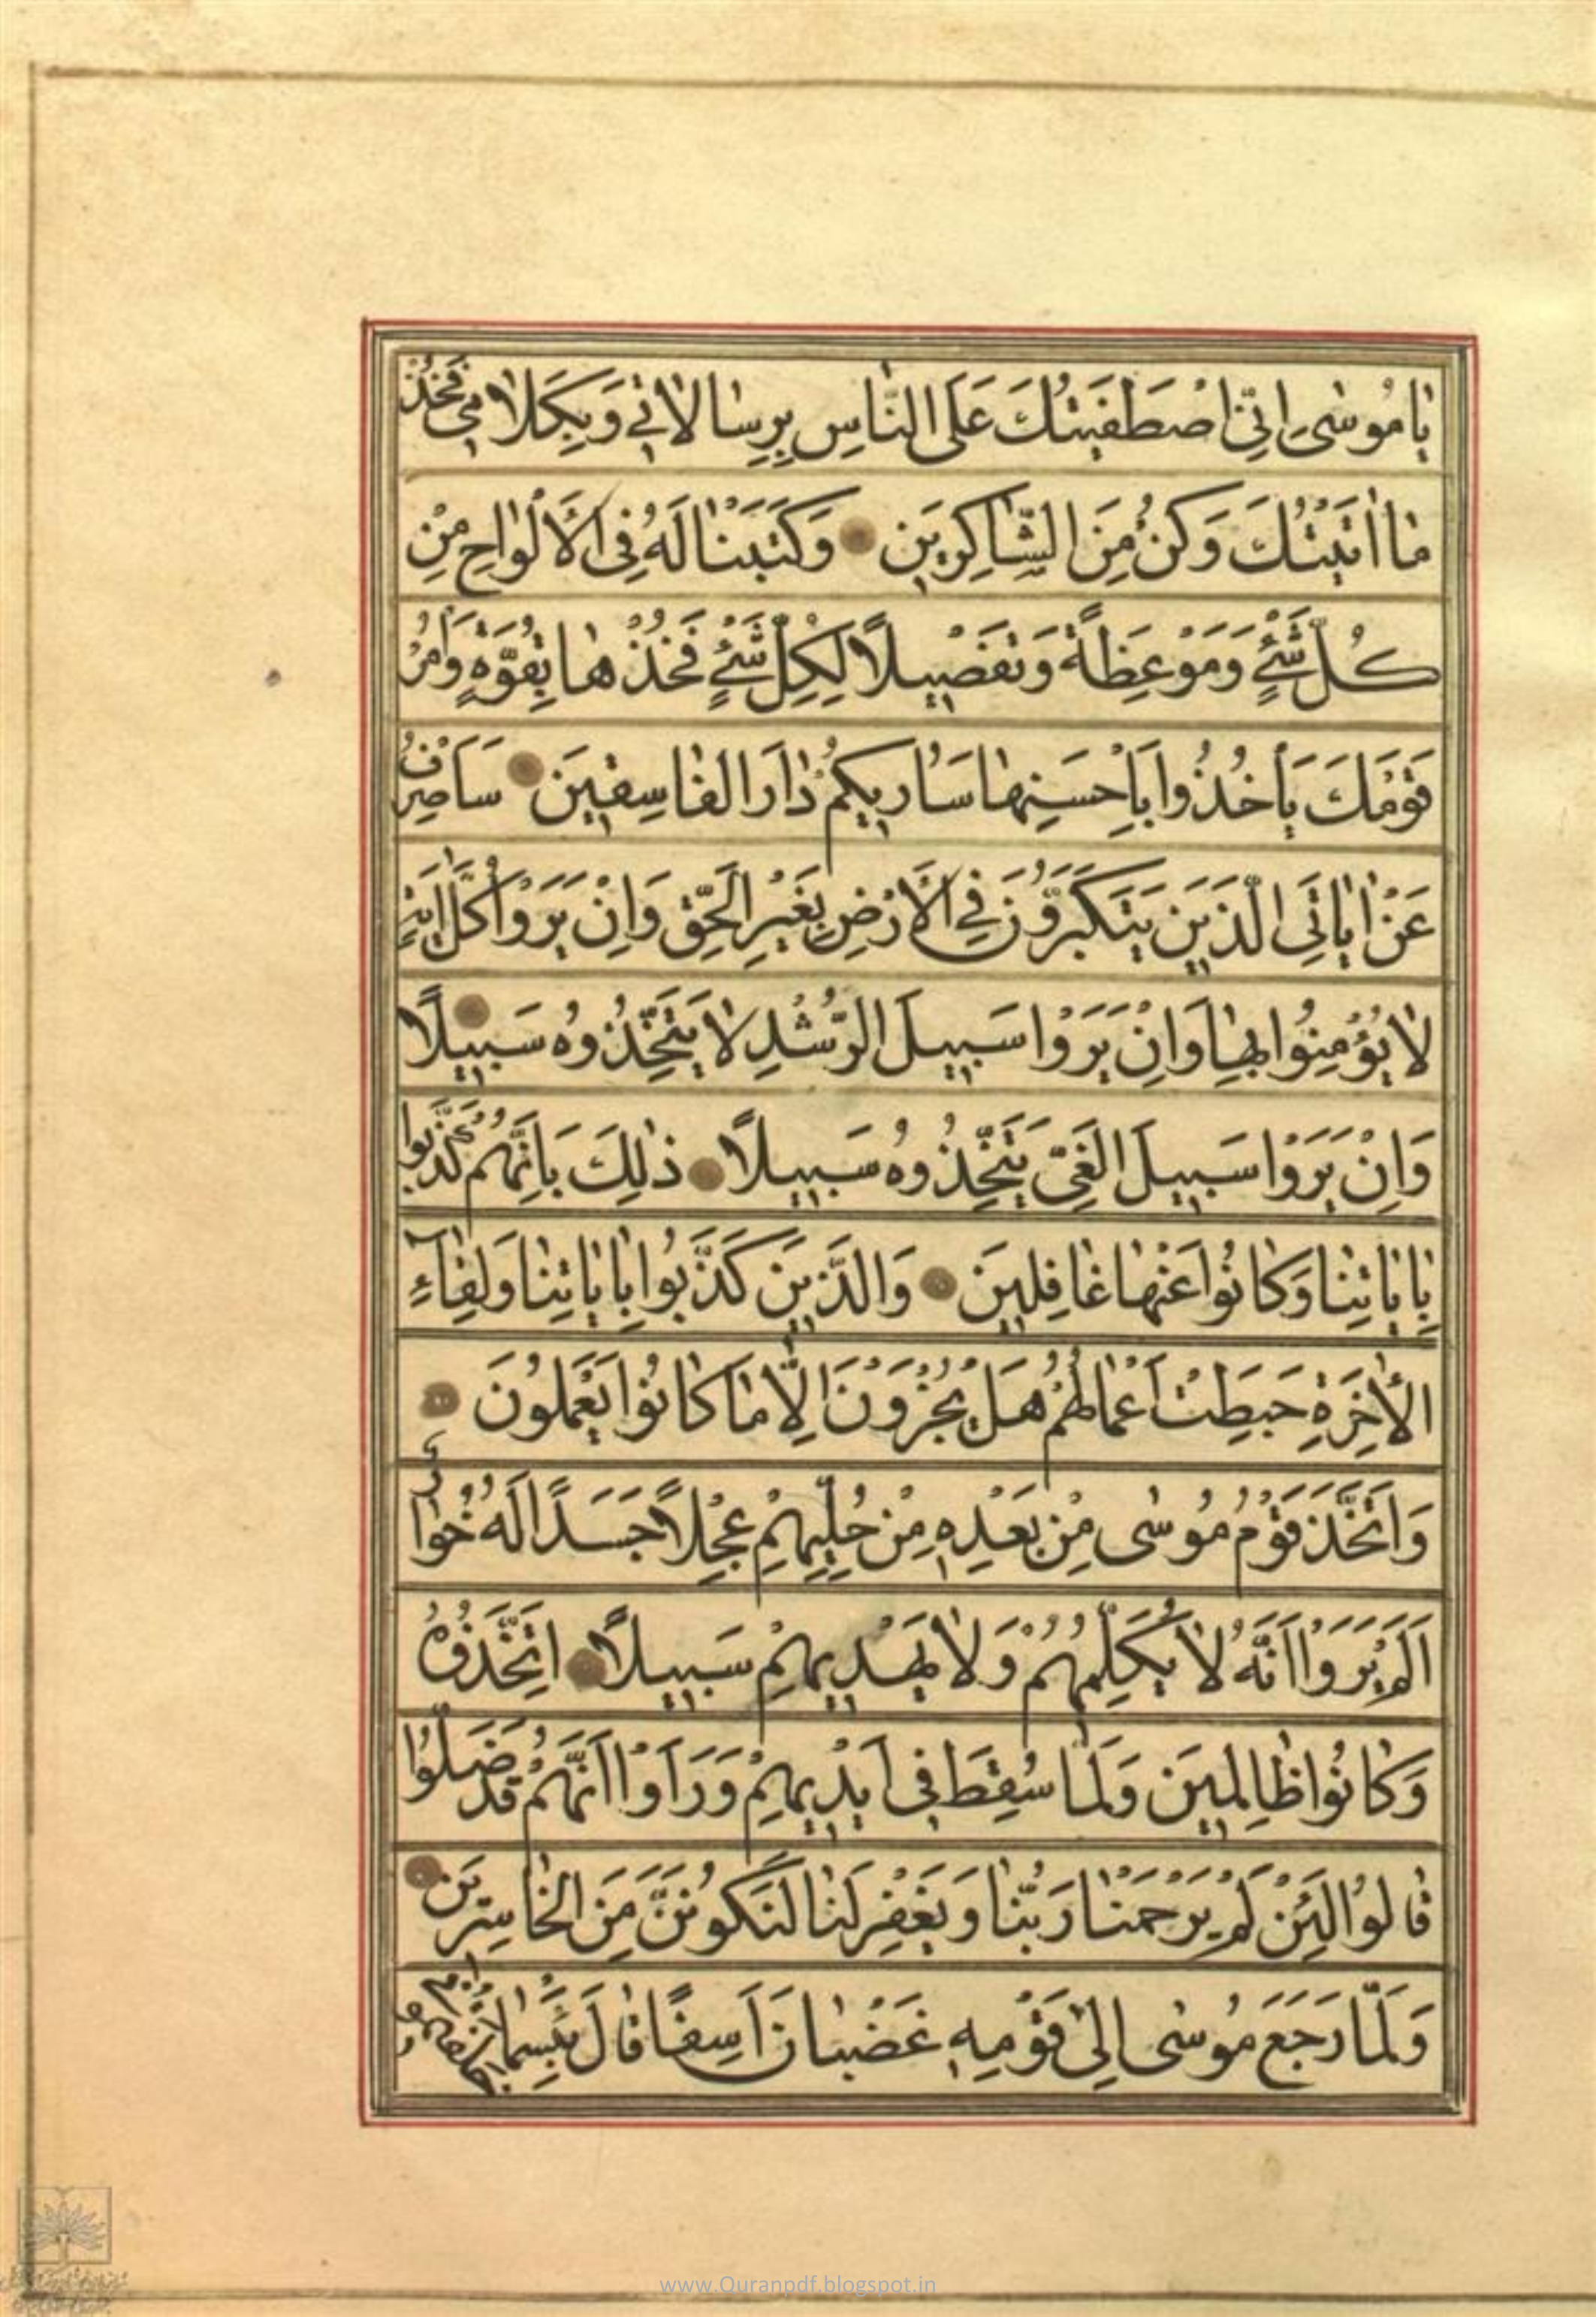 يٰا مُوسٰى اِنّى اصْطَفَيْتُكَ عَلَى النّٰاسِ بِرِسٰالاٰتي وَبِكَلاٰمي فَخُذْ
مٰا اٰتَيْتُكَ وَكُنْ مِنَ الشّٰاكِرينَ وَكَتَبْنٰا لَهُ فِى الْاَلْوٰاحِ مِنْ
كُلِّ شَيْءٍ وَمَوْعِظَةً وَتَفْصيلًا لِكُلِّ شَيْءٍ فَخُذْهٰا بِقُوَّةٍ وَأْمُرْ
قَوْمَكَ يَأْخُذُوا بِاَحْسَنِهٰا سَاُريكُمْ دٰارَ الْفٰاسِقينَ سَاَصْرِفُ
عَنْ اٰيٰاتِىَ الَّذينَ يَتَكَبَّرُونَ فِي الْاَرْضِ بِغَيْرِ الْحَقِّ وَاِنْ يَرَوْا كُلَّ اٰيَةٍ
لاٰ يُؤْمِنُوا بِهٰا وَاِنْ يَرَوْا سَبيلَ الرُّشْدِ لاٰ يَتَّخِذُوهُ سَبيلًا
وَاِنْ يَرَوْا سَبيلَ الْغَىِّ يَتَّخِذُوهُ سَبيلًا ذٰلِكَ بِاَنَّهُمْ كَذَّبُوا
بِاٰيٰاتِنٰا وَكٰانُوا عَنْهٰا غٰافِلينَ وَالَّذينَ كَذَّبُوا بِاٰيٰاتِنٰا وَلِقٰاۤءِ
الْاٰخِرَةِ حَبِطَتْ اَعْمٰالُهُمْ هَلْ يُجْزَوْنَ اِلّٰا مٰا كٰانُوا يَعْمَلُونَ
وَاتَّخَذَ قَوْمُ مُوسٰى مِنْ بَعْدِهِ مِنْ حُلِيِّهِمْ عِجْلًا جَسَدًا لَهُ خُوٰارٌ
اَلَمْ يَرَوْا اَنَّهُ لاٰ يُكَلِّمُهُمْ وَلاٰ يَهْديهِمْ سَبيلًا اِتَّخَذُوهُ
وَكٰانُوا ظٰالِمينَ وَلَمّٰا سُقِطَ فى اَيْديهِمْ وَرَاَوْا اَنَّهُمْ قَدْ ضَلُّوا
قٰالُوا لَئِنْ لَمْ يَرْحَمْنٰا رَبُّنٰا وَيَغْفِرْ لَنٰا لَنَكُونَنَّ مِنَ الْخٰاسِرينَ
وَلَمّٰا رَجَعَ مُوسٰى اِلٰى قَوْمِهِ غَضْبٰانَ اَسِفًا قٰالَ بِئْسَمٰا
www.Quranpdf.blogspot.in